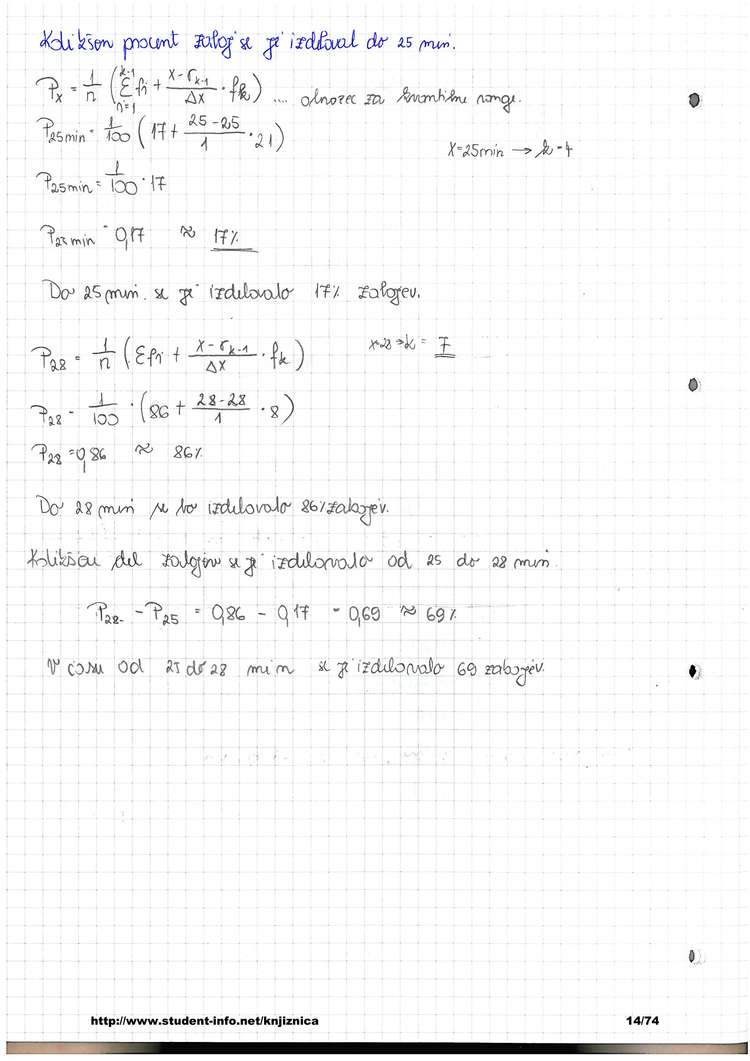 Kolikšen procent zaboj se je izdeloval do 25 min.
Px = 1/n (Σ fi + x - σk-1 / Δx · fk) .... obrazec za kvantilne range.
P25min = 1/100 (17 + 25-25 / 1 · 21)
x = 25min → k = 4
P25min = 1/100 · 17
P25min = 0,17 ≈ 17%
Do 25 min. se je izdelovalo 17% zabojev.
P28 = 1/n (Σfi + x - σk-1 / Δx · fk)
x=28 → k = 7
P28 = 1/100 · (86 + 28-28 / 1 · 8)
P28 = 0,86 ≈ 86%
Do 28 min se bo izdelovalo 86% zabojev.
Kolikšen del zabojev se je izdelovalo od 25 do 28 min
P28 - P25 = 0,86 - 0,17 = 0,69 ≈ 69%
V času od 25 do 28 min se je izdelovalo 69 zabojev.
http://www.student-info.net/knjiznica
14/74